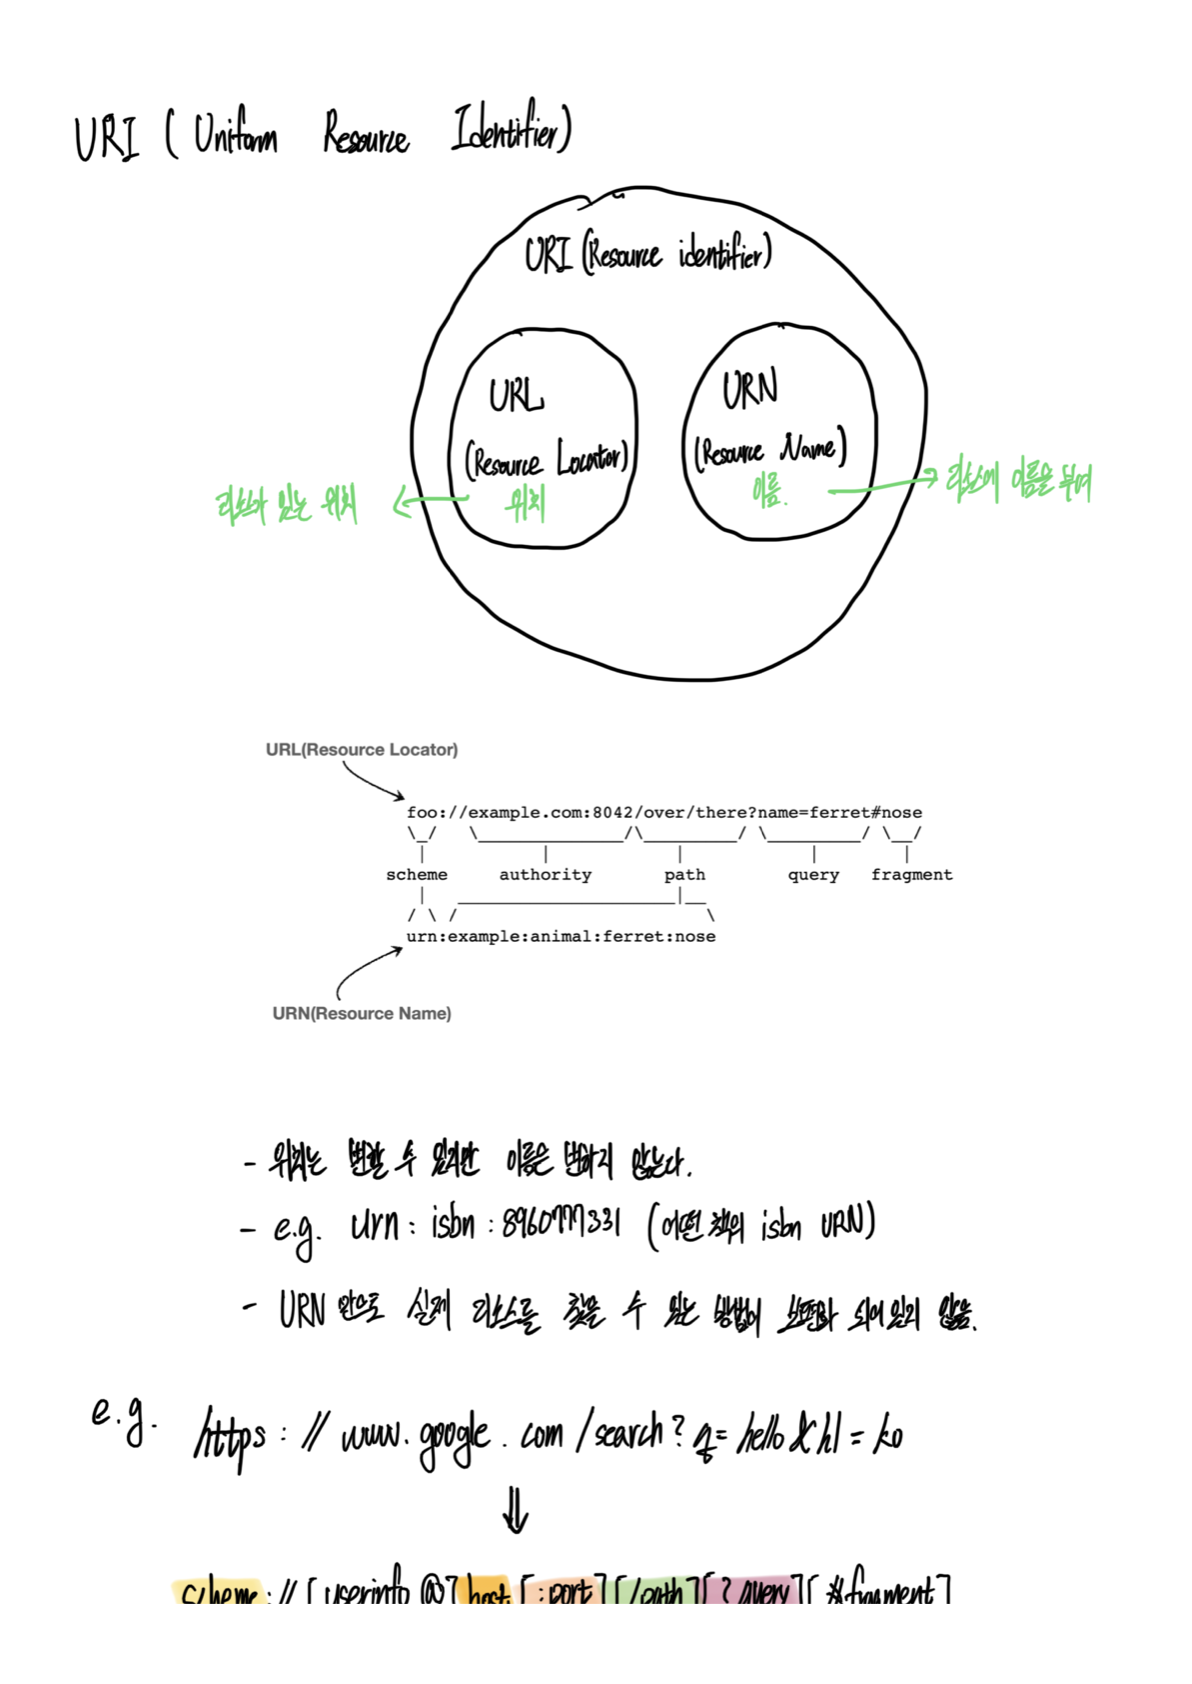 URI ( Uniform Resource Identifier)
URI (Resource identifier)
URL
(Resource Locator)
위치
URN
(Resource Name)
이름.
리소스가 있는 위치
리소스에 이름을 부여
URL(Resource Locator)
foo://example.com:8042/over/there?name=ferret#nose
scheme authority path query fragment
urn:example:animal:ferret:nose
URN(Resource Name)
- 위치는 변할 수 있지만 이름은 변하지 않는다.
- e.g. urn : isbn : 8960777331 (어떤 책의 isbn URN)
- URN 만으로 실제 리소스를 찾을 수 있는 방법이 보편화 되어있지 않음.
e.g. https : // www. google . com /search? q= hello & hl = ko
⇓
scheme : // [userinfo @] host [ :port] [/path] [?query] [ #fragment]